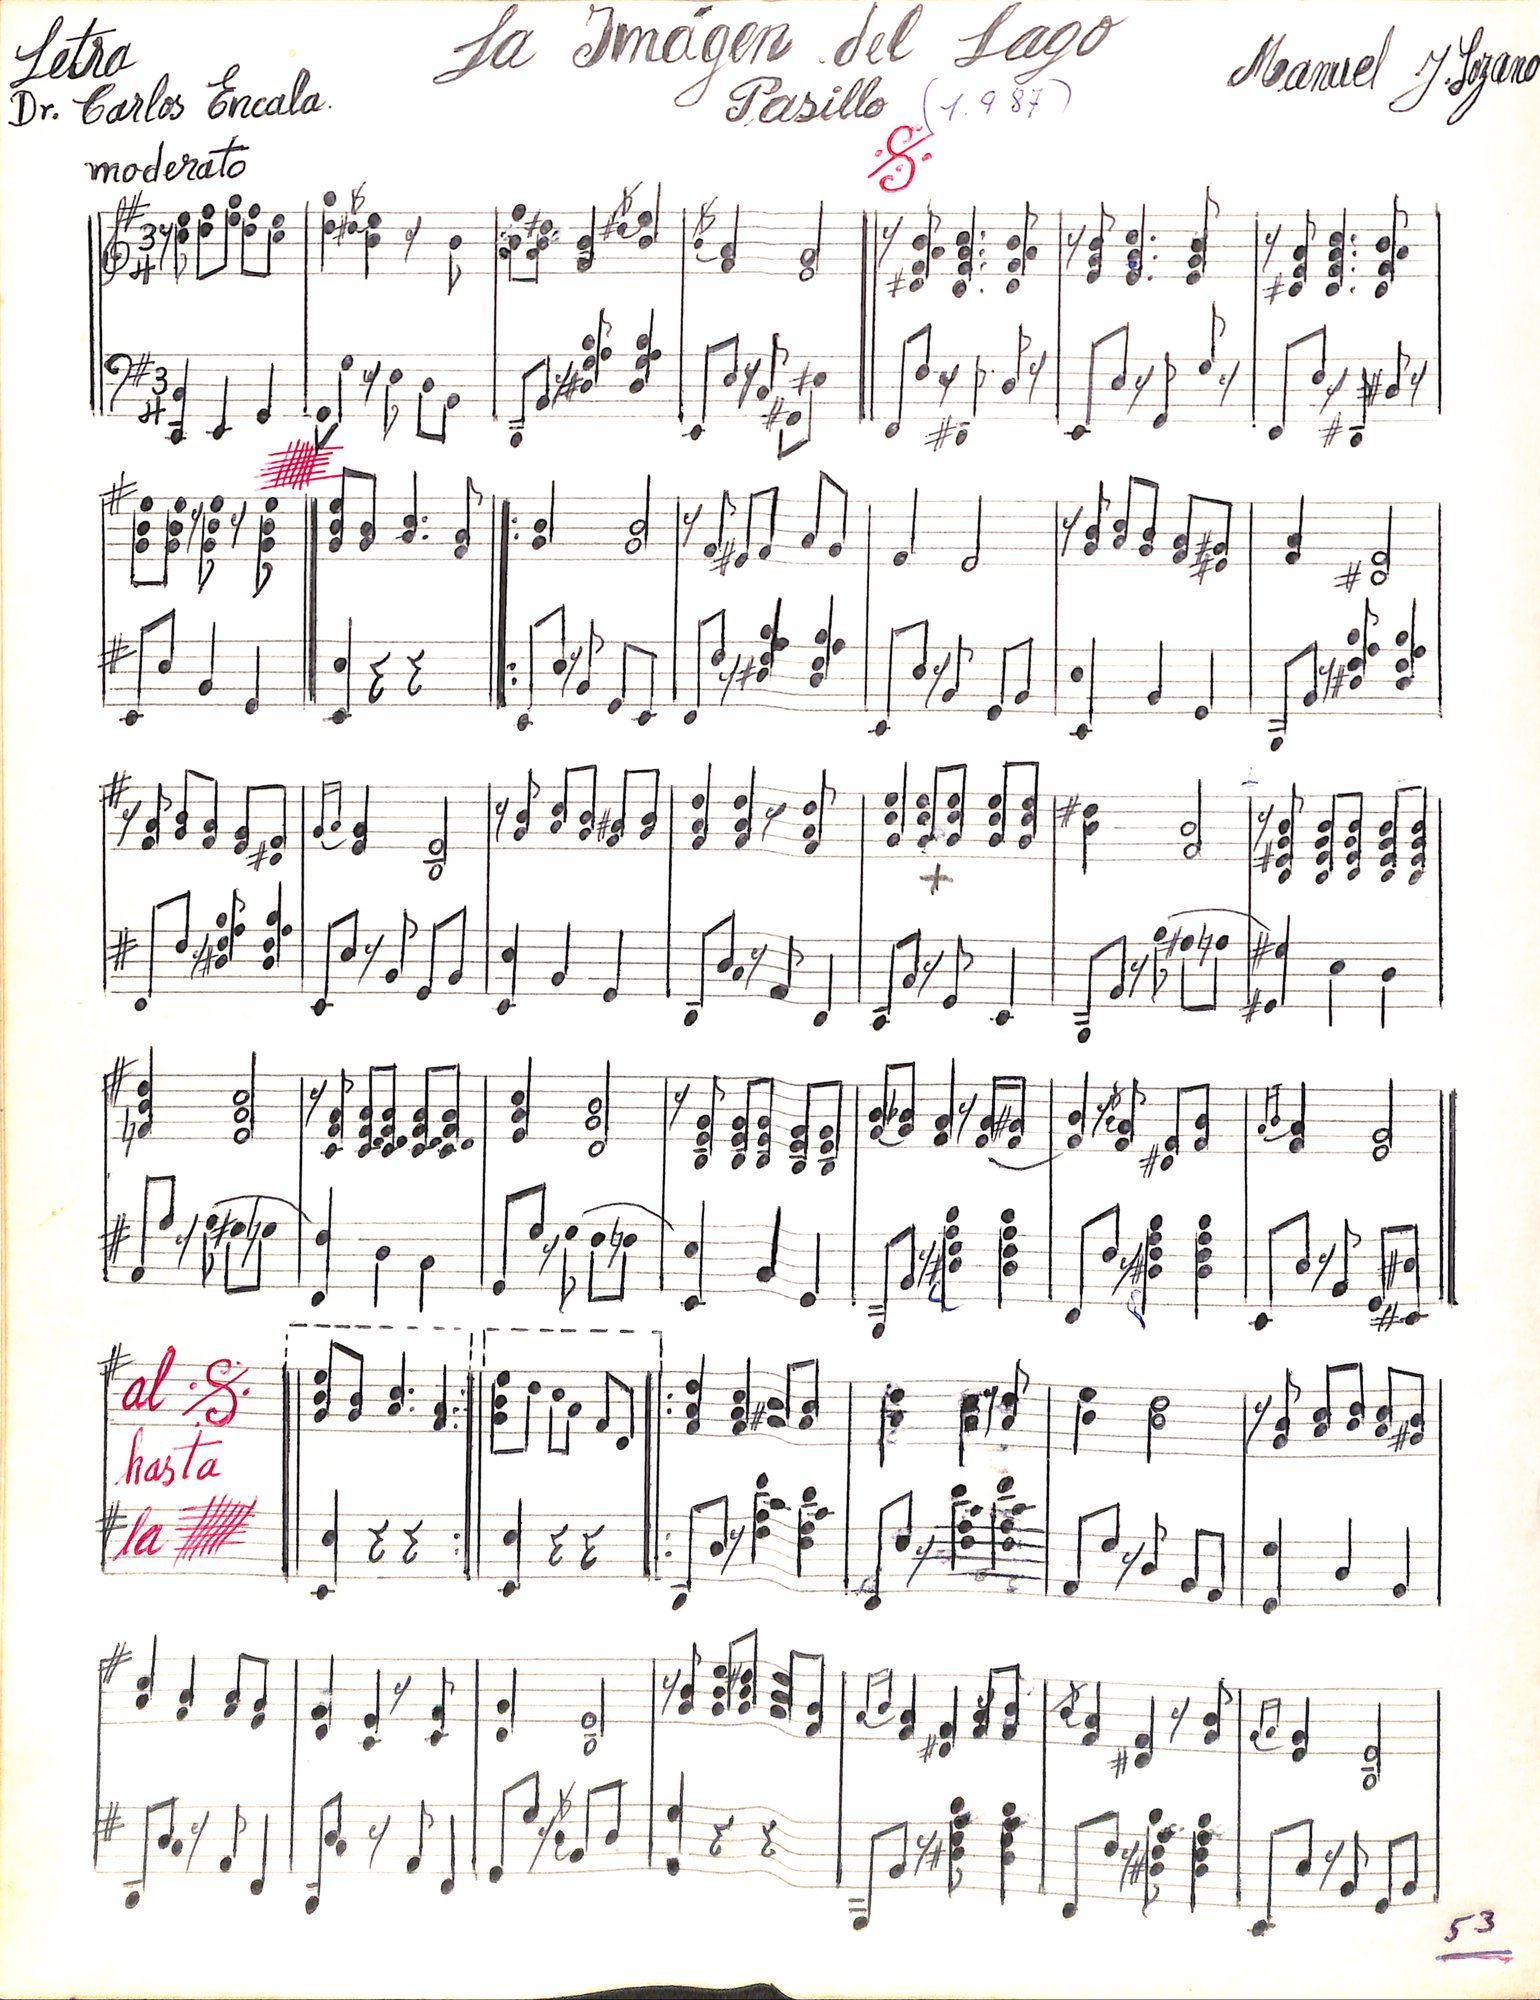 La Imágen del Lago
Letra
Dr. Carlos Encala.
Pasillo (1.987)
Manuel J. Lozano
moderato
3
4
3
4
al
hasta
la
53